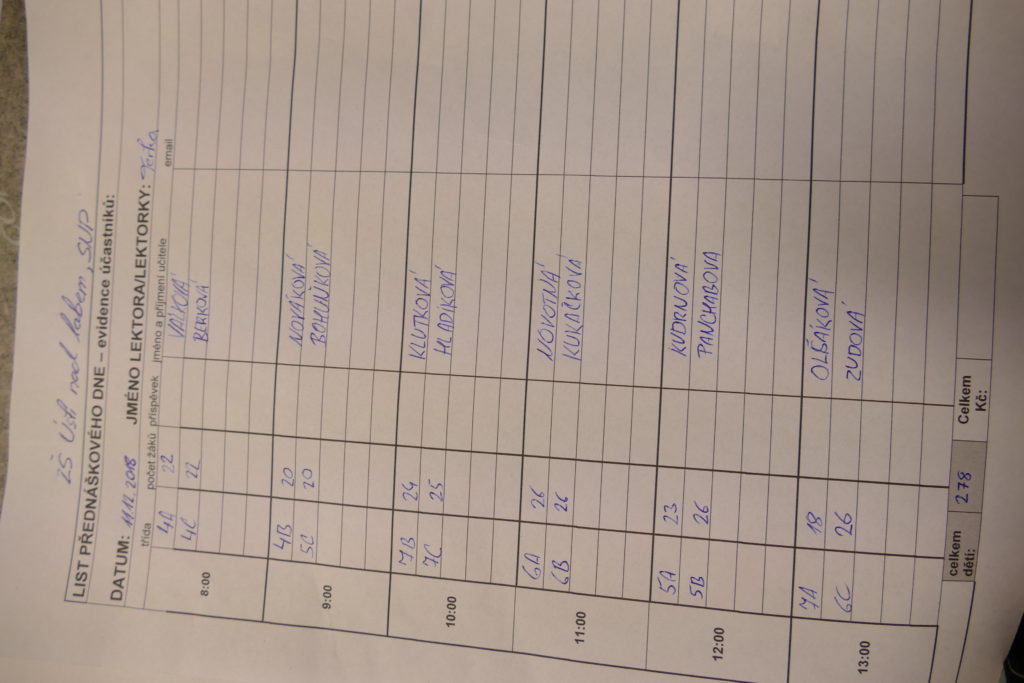 ZŠ Ústí nad Labem, SNP
LIST PŘEDNÁŠKOVÉHO DNE – evidence účastníků:
DATUM: 11.12.2018 JMÉNO LEKTORA/LEKTORKY: Terka
třída počet žáků příspěvek jméno a příjmení učitele email
8:00
4A 22 VALKOVÁ
4C 22 BERKOVÁ
9:00
4B 20 NOVÁKOVÁ
5C 20 BOHUŇKOVÁ
10:00
7B 24 KLUTKOVÁ
7C 25 HLADÍKOVÁ
11:00
6A 26 NOVOTNÁ
6B 26 KUKAČKOVÁ
12:00
5A 23 KUDRNOVÁ
5B 26 PANCHABOVA
13:00
7A 18 OLŠÁKOVÁ
6C 26 ZUDOVÁ
celkem dětí: 278 Celkem Kč: